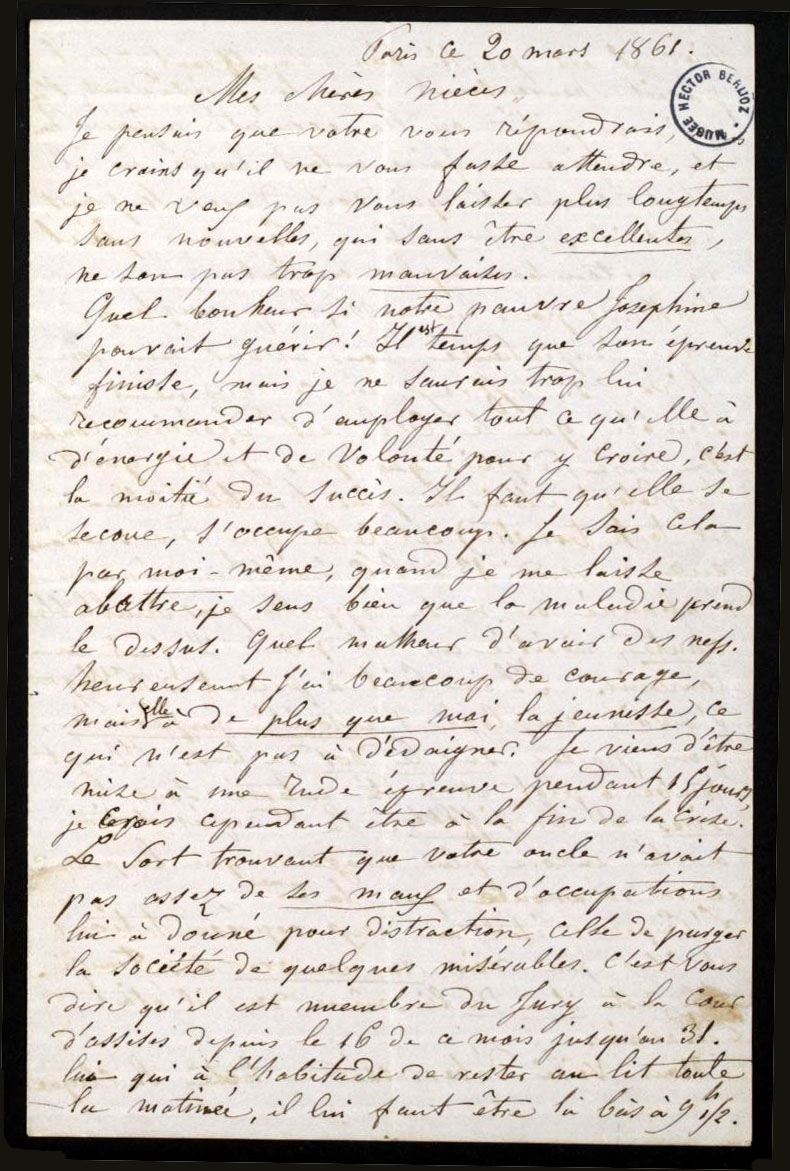 Paris ce 20 mars 1861.
MUSEE HECTOR BERLIOZ
Mes chères nièces
Je pensais que votre vous répondrais,
je crains qu'il ne vous fasse attendre, et
je ne veux pas vous laisser plus longtemps
sans nouvelles, qui sans être excellentes,
ne son pas trop mauvaises.
Quel bonheur si notre pauvre Josephine
pouvait guérir! Il est temps que son épreuve
finisse, mais je ne saurais trop lui
recommander d'employer tout ce qu'elle à
d'énergie et de volonté pour y croire, c'est
la moitié du succès. Il faut qu'elle se
secoue, s'occupe beaucoup. Je sais cela
par moi-même, quand je me laisse
abattre, je sens bien que la maladie prend
le dessus. Quel malheur d'avoir des nefs.
heureusement j'ai beaucoup de courage,
mais elle à de plus que moi, la jeunesse, ce
qui n'est pas à dédaigner. Je viens d'être
mise à une rude épreuve pendant 15 jours,
je crois cependant être à la fin de la crise.
Le sort trouvant que votre oncle n'avait
pas assez de ses maux et d'occupations
lui à donné pour distraction, celle de purger
la société de quelques misérables. C'est vous
dire qu'il est membre du Jury à la Cour
d'assises depuis le 16 de ce mois jusqu'au 31.
lui qui à l'habitude de rester au lit toute
la matinée, il lui faut être là bàs à 9 h 1/2.